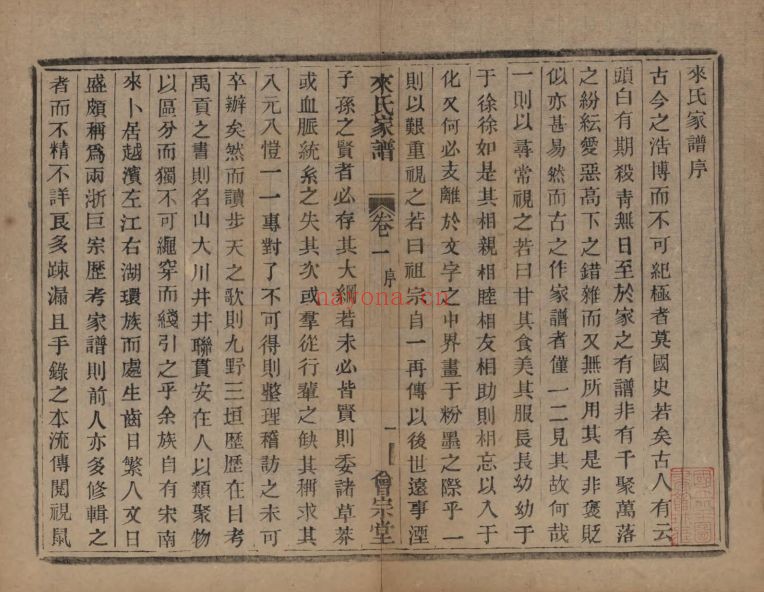 來氏家譜序
古今之浩博而不可紀極者莫國史若矣古人有云
頭白有期殺青無日至於家之有譜非有千聚萬落
之紛紜愛惡高下之錯雜而又無所用其是非褒貶
似亦甚易然而古之作家譜者僅一二見其故何哉
一則以尋常視之若曰甘其食美其服長長幼幼于
于徐徐如是其相親相睦相友相助則相忘以入于
化又何必支離於文字之中界畫于粉墨之際乎一
則以艱重視之若曰祖宗自一再傳以後世遠事湮
來氏家譜 卷一 序 一 會宗堂
子孫之賢者必存其大綱若未必皆賢則委諸草莽
或血脈統系之失其次或羣從行輩之缺其稱求其
八元八愷一一專對了不可得則整理稽訪之未可
卒辦矣然而讀步天之歌則九野三垣歷歷在目考
禹貢之書則名山大川井井聯貫安在人以類聚物
以區分而獨不可繩穿而綫引之乎余族自有宋南
來卜居越濱左江右湖環族而處生齒日繁人文日
盛頗稱爲兩浙巨宗歷考家譜則前人亦多修輯之
者而不精不詳良多疎漏且手錄之本流傳閱視鼠
navona.cn